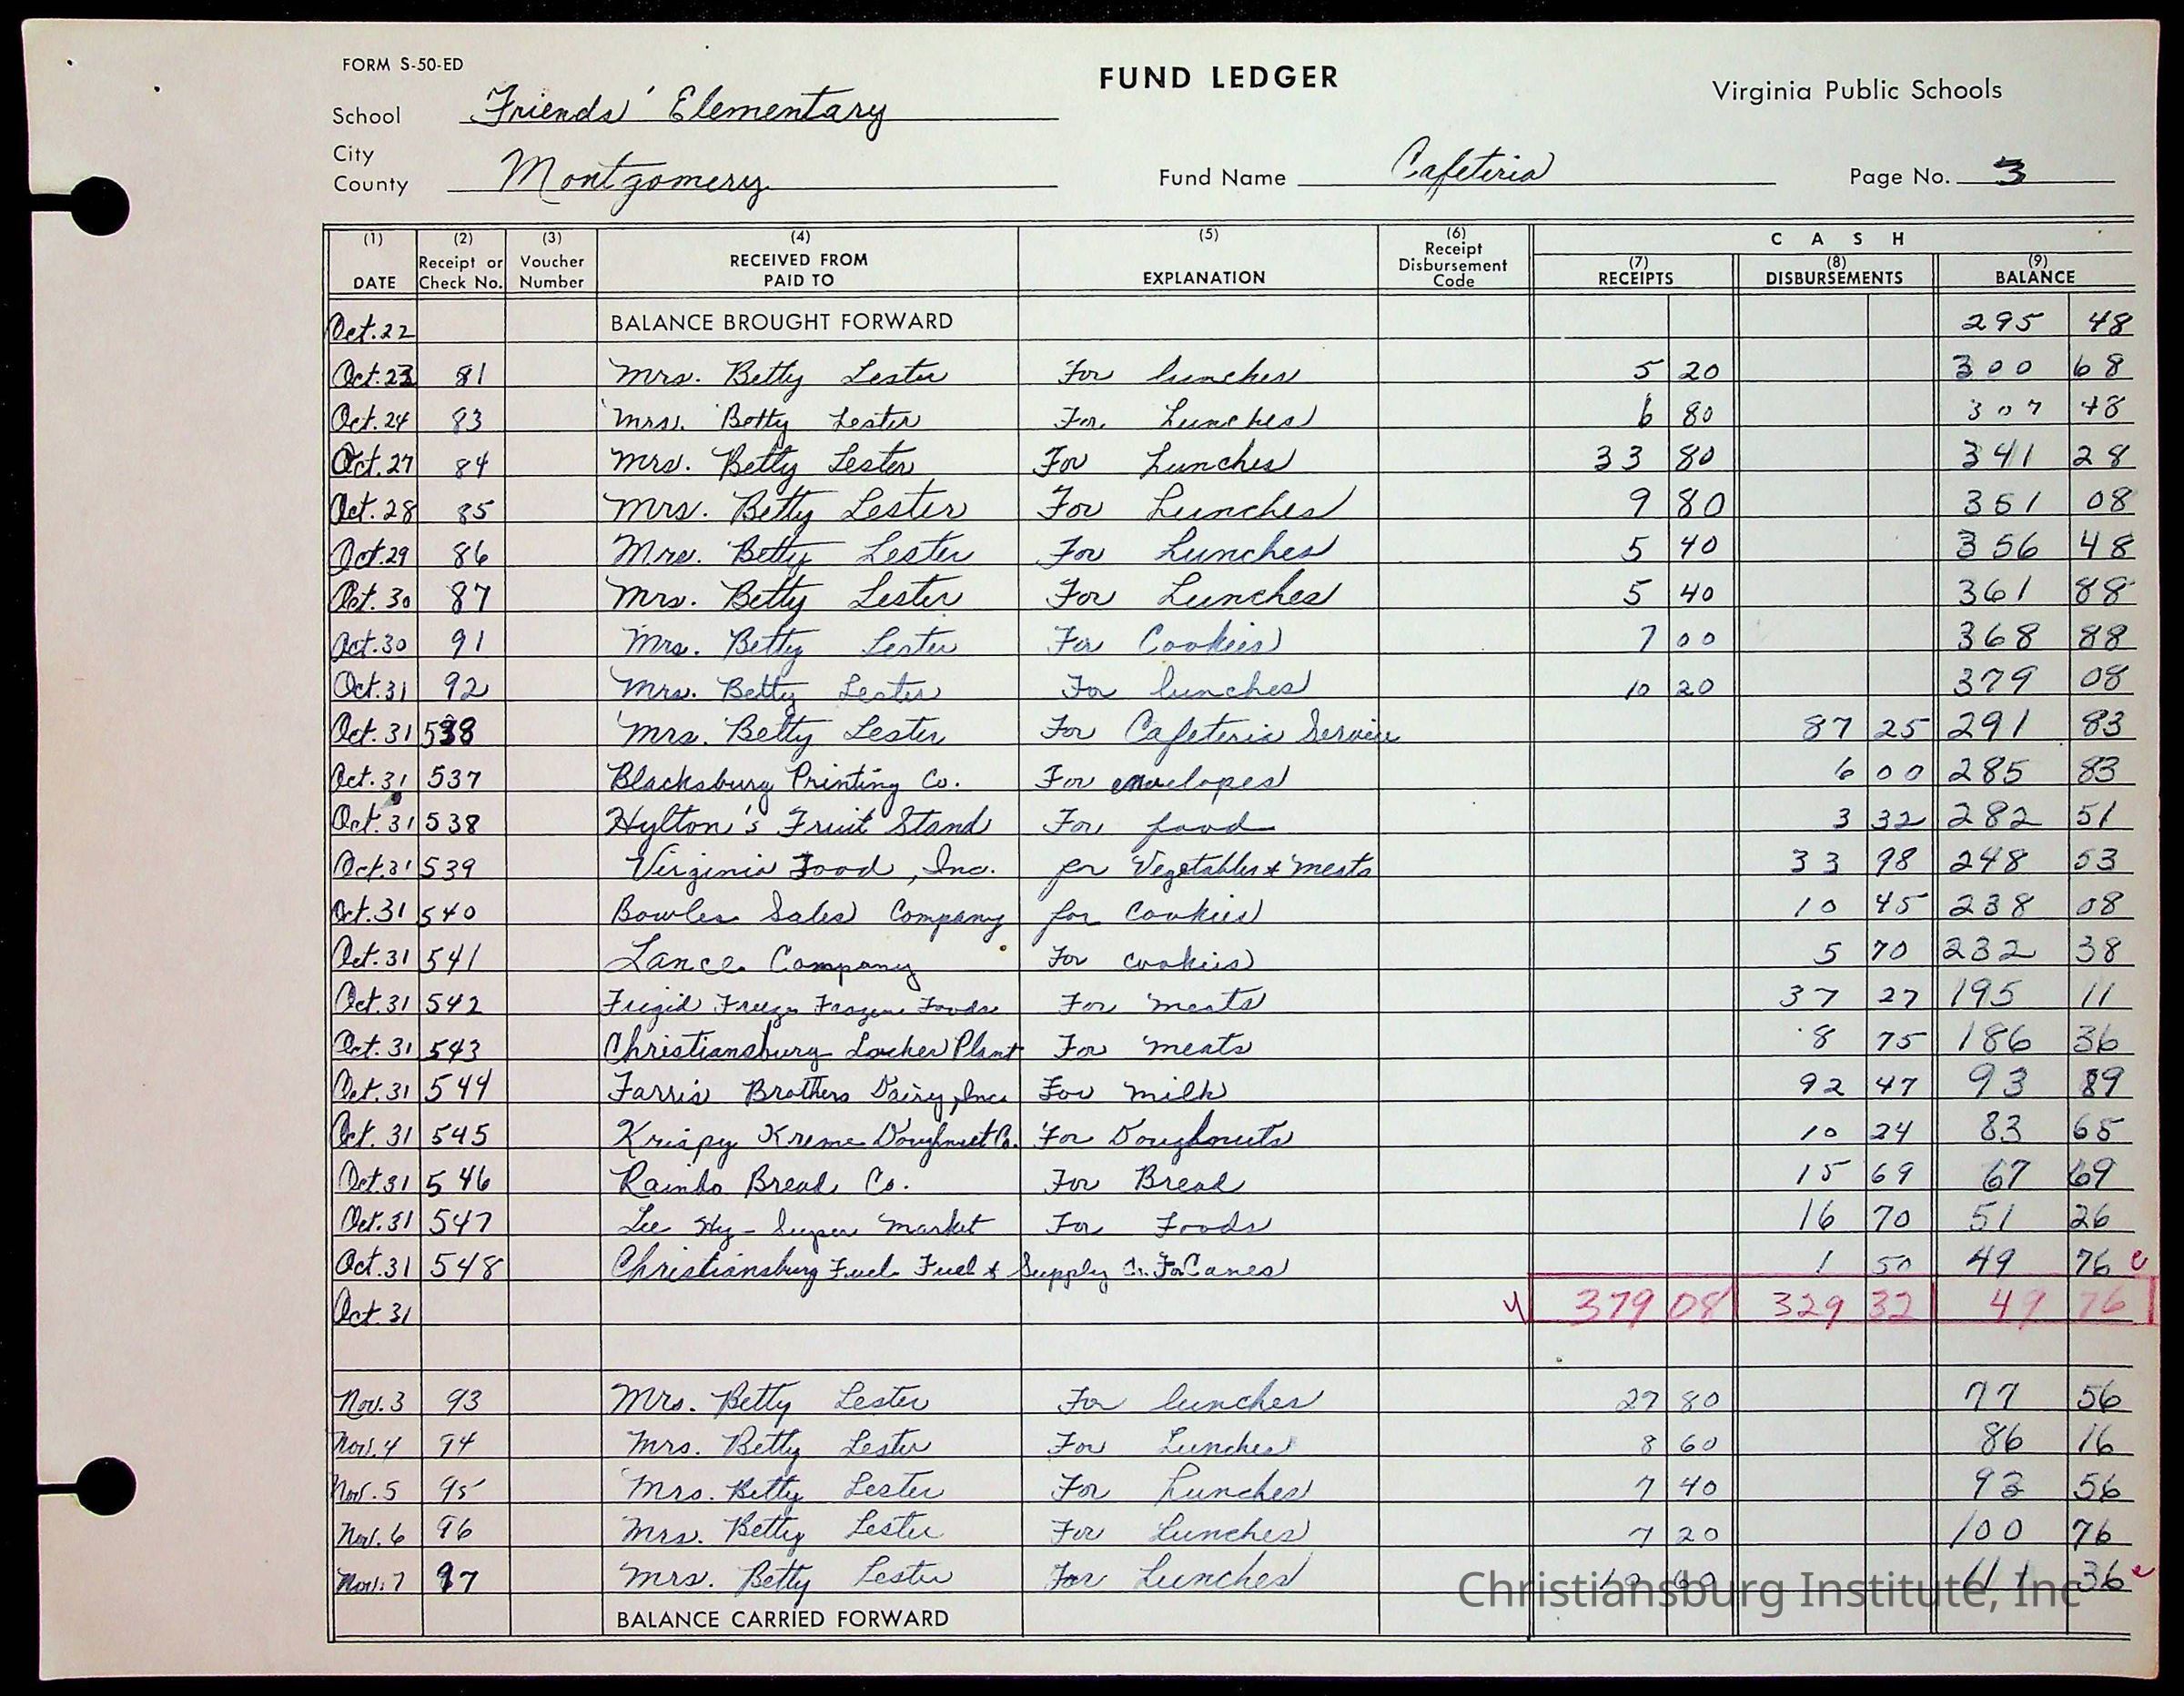 FORM S-50-ED
FUND LEDGER
Virginia Public Schools
School Friends' Elementary
City
County Montgomery
Fund Name Cafeteria
Page No. 3
(1) DATE (2) Receipt or Check No. (3) Voucher Number (4) RECEIVED FROM PAID TO (5) EXPLANATION (6) Receipt Disbursement Code CASH (7) RECEIPTS (8) DISBURSEMENTS (9) BALANCE
Oct. 22 BALANCE BROUGHT FORWARD 295 48
Oct. 23 81 Mrs. Betty Lester For lunches 5 20 300 68
Oct. 24 83 Mrs. Betty Lester For Lunches 6 80 307 48
Oct. 27 84 Mrs. Betty Lester For Lunches 33 80 341 28
Oct. 28 85 Mrs. Betty Lester For Lunches 9 80 351 08
Oct. 29 86 Mrs. Betty Lester For Lunches 5 40 356 48
Oct. 30 87 Mrs. Betty Lester For Lunches 5 40 361 88
Oct. 30 91 Mrs. Betty Lester For Cookies 7 00 368 88
Oct. 31 92 Mrs. Betty Lester For lunches 10 20 379 08
Oct. 31 Mrs. Betty Lester For Cafeteria Service 87 25 291 83
Oct. 31 537 Blacksburg Printing Co. For envelopes 6 00 285 83
Oct. 31 538 Hylton's Fruit Stand For food 3 32 282 51
Oct. 31 539 Virginia Food, Inc. for Vegetables & meats 33 98 248 53
Oct. 31 540 Bowles Sales Company for Cookies 10 45 238 08
Oct. 31 541 Lance Company For cookies 5 70 232 38
Oct. 31 542 Frigid Freeze Frozen Foods For meats 37 27 195 11
Oct. 31 543 Christiansburg Locker Plant For meats 8 75 186 36
Oct. 31 544 Farris Brothers Dairy, Inc. For milk 92 47 93 89
Oct. 31 545 Krispy Kreme Doughnut Co. For Doughnuts 10 24 83 65
Oct. 31 546 Rainbo Bread Co. For Bread 15 69 67 69
Oct. 31 547 Lee Hy-Super Market For Foods 16 70 51 26
Oct. 31 548 Christiansburg Fuel Fuel & Supply Co. For Canes 1 50 49 76
Oct. 31 379 08 329 32 49 76
Nov. 3 93 Mrs. Betty Lester For lunches 27 80 77 56
Nov. 4 94 Mrs. Betty Lester For Lunches 8 60 86 16
Nov. 5 95 Mrs. Betty Lester For Lunches 7 40 93 56
Nov. 6 96 Mrs. Betty Lester For Lunches 7 20 100 76
Nov. 7 97 Mrs. Betty Lester For Lunches 10 60 111 36
BALANCE CARRIED FORWARD
Christiansburg Institute, Inc